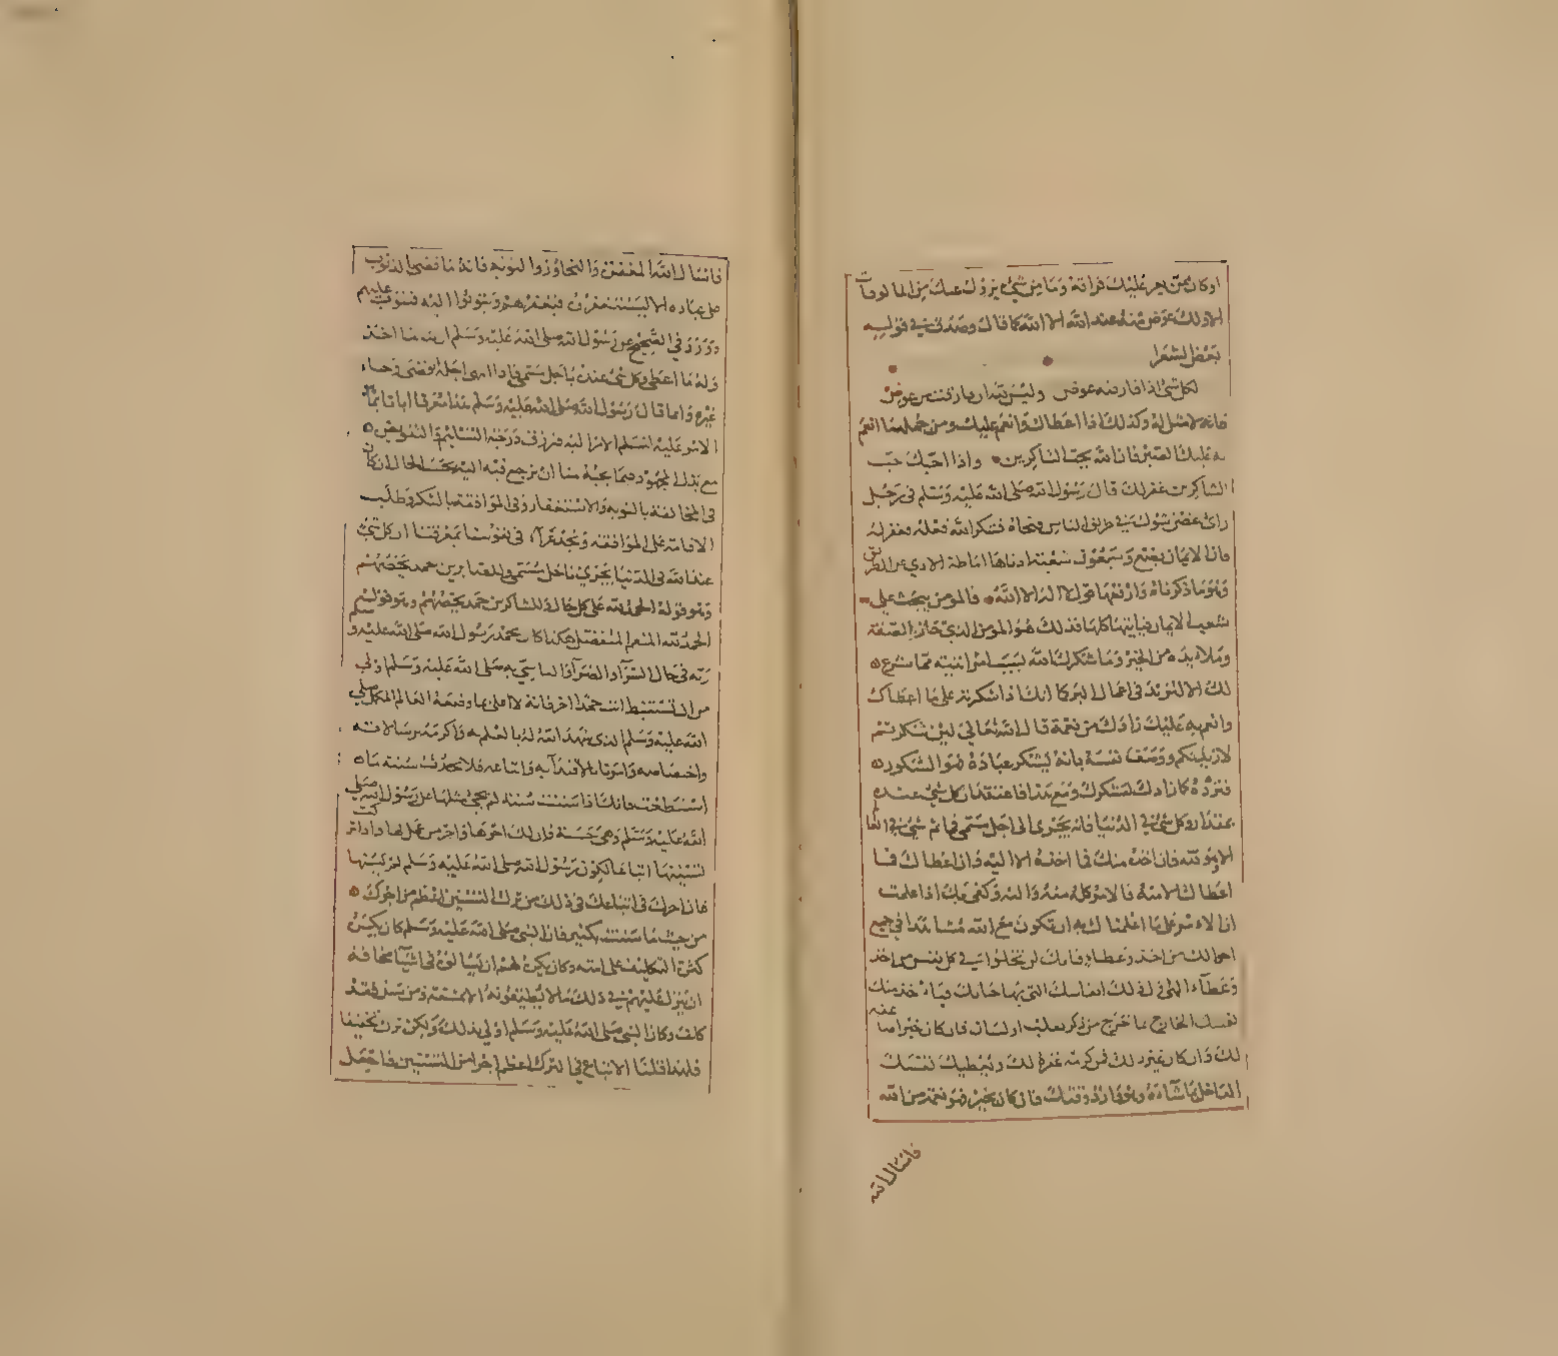 او كان ممن يعز عليك فراقه وما من شيء يزول عنك من المالوفات
الا ولك عوض منه عند الله الا الله كما قال وصدق في قوله
بعض الشعرا
لكل شيء اذا فارقته عوض وليس لله ان فارقت من عوض
فانه لا مثل له وكذلك اذا اعطاك وانعم عليك ومن جملة ما انعم
به عليك الصبر فان الله يحب الشاكرين واذا احبك حب
الشاكرين غفر لك قال رسول الله صلى الله عليه وسلم في رجل
راى غصن شوك في طريق الناس فنحاه فشكر الله فعله فغفر له
فان الايمان بضع وسبعون شعبة ادناها اماطة الاذي عن الطريق
وهو ما ذكرناه وارفعها قول لا اله الا الله فالمومن يبحث على
شعب الايمان فياتيها كلها فذلك هو المومن الذي حاز الصفة
وملا يده من الخير وما شكرك الله بسبب امر اتيته مما شرع
لك الا لتزيد في اعمال البر كما انك اذا شكرته على ما اعطاك
وانعم به عليك زادك من نعمه قال الله تعالى لين شكرتم
لازيدنكم ووصف نفسه بانه يشكر عباده فهو الشكور
فزده كما زادك لشكرك ومع هذا فاعتقد ان كل شيء عنده
بمقدار وكل شيء في الدنيا فانه يجري الى اجل مسمى فما ثم شيء في العالم
الا وهو لله فان اخذه منك فما اخذه الا اليه وان اعطاك فما
اعطاك الا منه فالامر كله منه واليه وكفى بك اذا علمت
ان الامر على ما اعلمتك به ان تكون مع الله مشاهدا في جميع
احوالك من اخذ وعطاء فانك لن تخلوا في كل نفس من اخذ
وعطاء الهي في ذلك انفاسك التي بها حياتك فياخذ منك
نفسك الخارج بما خرج من ذكر بقلب او لسان فان كان خيرا ضاعفه
لك وان كان غير ذلك فمن كرمه غفره لك ويعطيك نفسك
الداخل بما شاءه وهو وارد وقتك فان كان بخير فهو نعمة من الله
فاسال الله
فاسال الله المغفرة والتجاوز والتوبة فانه ما قضى بالذنوب
على عباده الا ليستغفروه فيغفر لهم ويتوبوا اليه فيتوب عليهم
وورد في الصحيح عن رسول الله صلى الله عليه وسلم ان لله ما اخذ
وله ما اعطى وكل شيء عنده باجل مسمى فاذا انتهى اجله انقضى وجاء
غيره وانما قال رسول الله صلى الله عليه وسلم هذا معرفا ايانا بما
الامر عليه لنسلم الامر اليه فنرزق درجة التسليم والتفويض
مع بذل المجهود فيما يحبه منا ان نرجع فيه اليه بحسب الحال ان كان
في المخالفة بالتوبة والاستغفار وفي الموافقة بالشكر وطلب
الاقامة على الموافقة ونجد عزاء في نفوسنا بمعرفتنا ان كل شيء
عند الله في الدنيا يجري باجل مسمى وللصابرين حمد يخصهم
وهو قوله الحمد لله على كل حال وللشاكرين حمد يخصهم وهو قولهم
الحمد لله المنعم المفضل هكذا كان يحمد رسول الله صلى الله عليه وسلم
ربه في حال السراء والضراء فالتاسي به صلى الله عليه وسلم اولى
من ان تستنبط انت حمدا اخر فانه لا اعلى مما وضعه العالم المكمل صلى
الله عليه وسلم الذي شهد الله له بالعلم به واكرمه برسالاته
واختصاصه وامرنا بالاقتداء به واتباعه فلا تحدث سنة ما
استطعت فانك اذا سننت سنة لم يجئ مثلها عن رسول الله صلى
الله عليه وسلم وهي حسنة فان لك اجرها واجر من عمل بها واذا تركت
تسنينها اتباعا لكون رسول الله صلى الله عليه وسلم لم يسنها
فان اجرك في اتباعك في ذلك من ترك التسنين اعظم من اجرك
من حيث ما سننت بكثير فان النبي صلى الله عليه وسلم كان يكره
كثرة التكليف على امته وكان يكره لهم ان يسالوه في اشياء مخافة
ان ينزل عليهم في ذلك ما لا يطيقونه الا بمشقة ومن سن فقد
كلف وكان النبي صلى الله عليه وسلم اولى بذلك ولكن تركه تخفيفا
فلهذا قلنا الاتباع في الترك اعظم اجرا من التسنين فاجعل